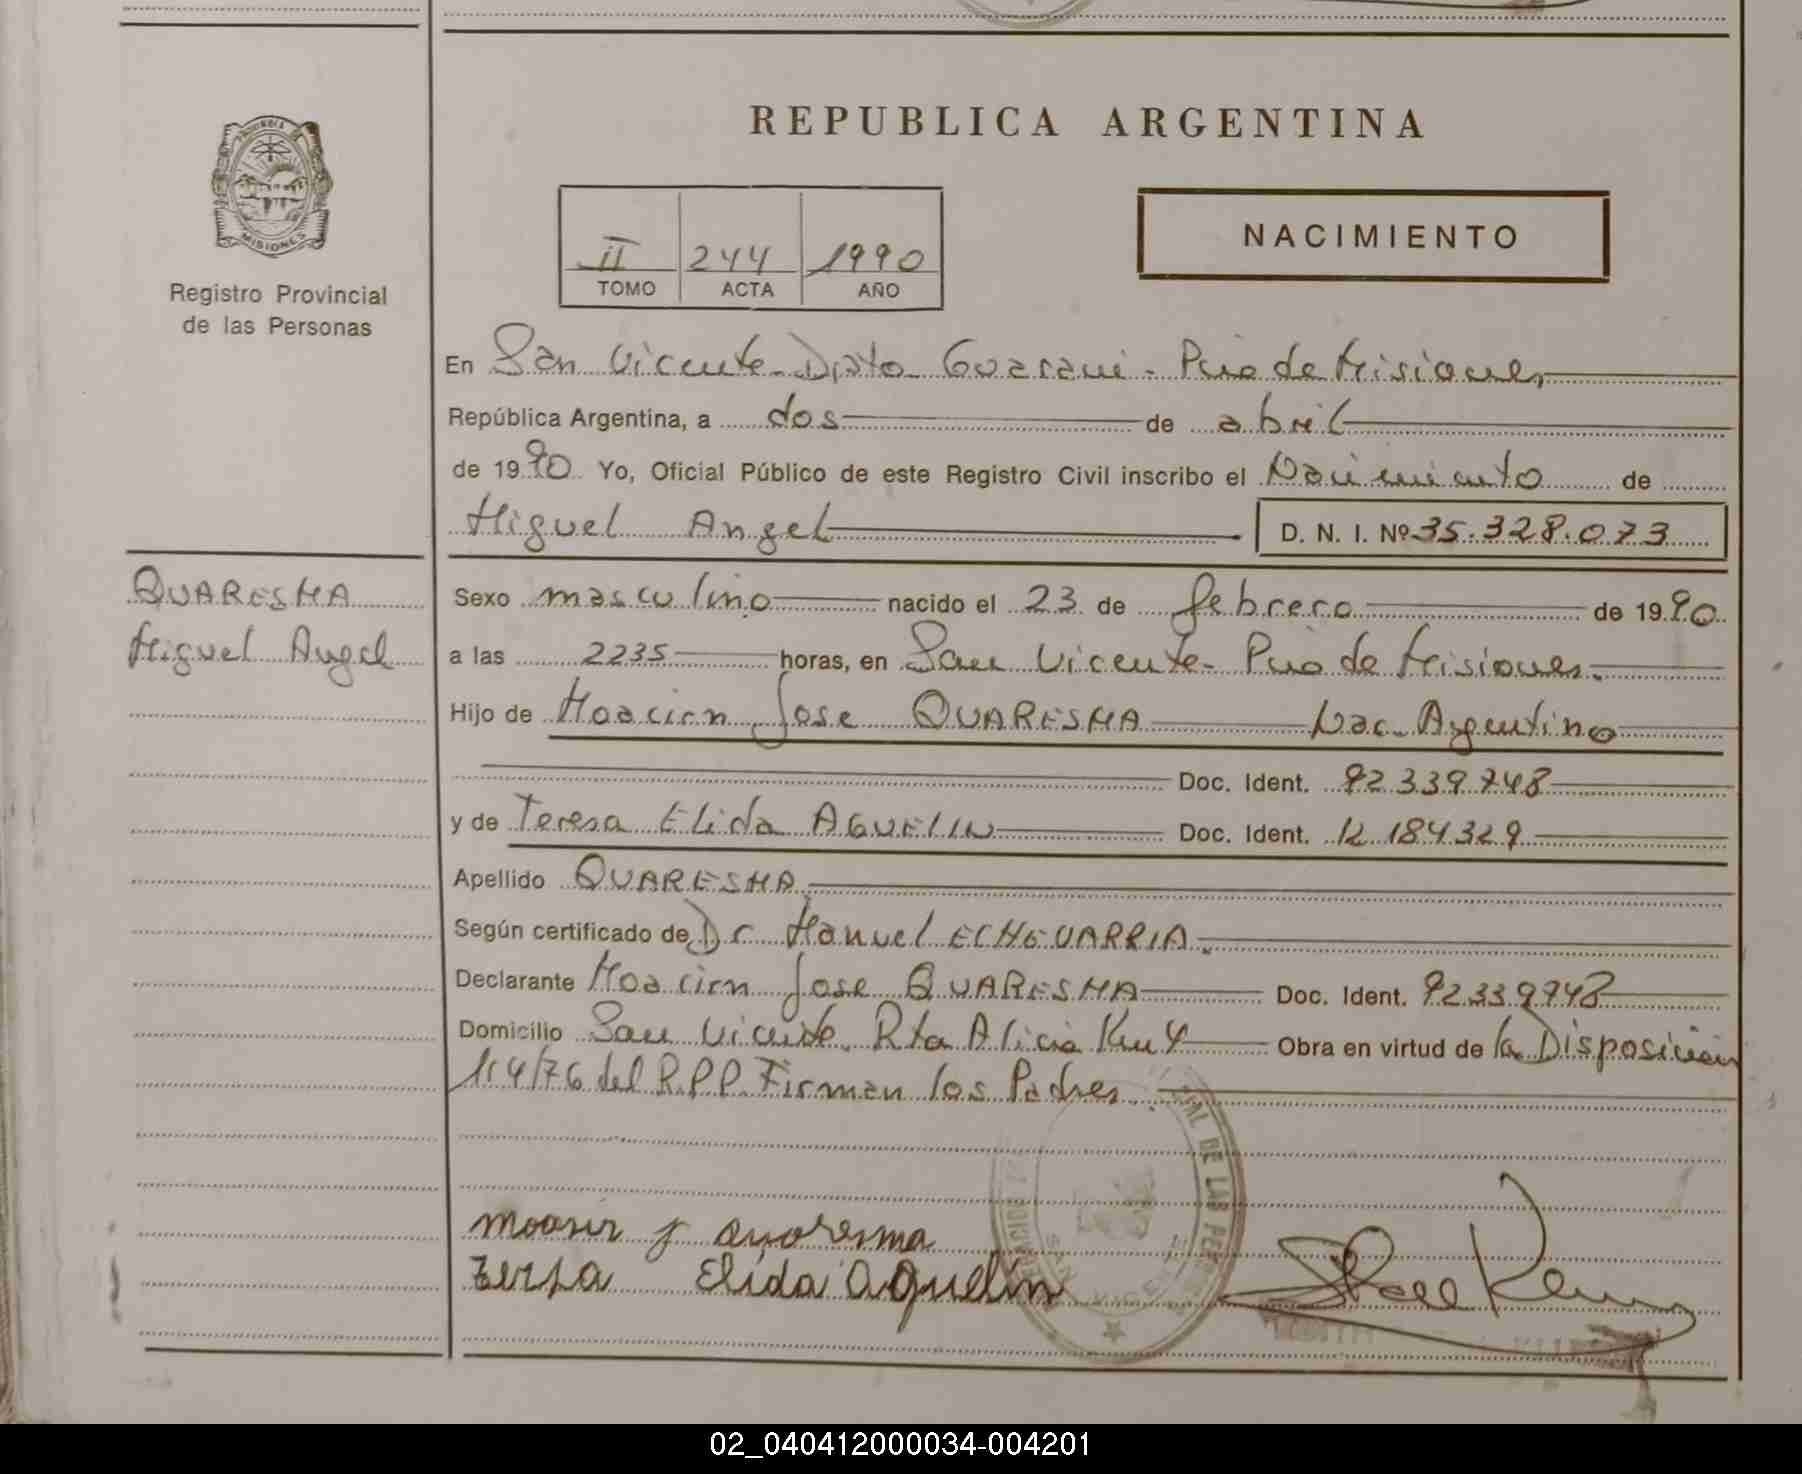 REPUBLICA ARGENTINA
PROVINCIA DE
MISIONES
Registro Provincial
de las Personas
II 244 1990
TOMO ACTA AÑO
NACIMIENTO
En San Vicente - Dpto Guarani - Pcia de Misiones
República Argentina, a dos de abril
de 1990 Yo, Oficial Público de este Registro Civil inscribo el Nacimiento de
Miguel Angel D. N. I. Nº 35.328.073
QUARESMA
Miguel Angel
Sexo masculino nacido el 23 de febrero de 1990
a las 2235 horas, en San Vicente - Pcia de Misiones.
Hijo de Moacirn Jose QUARESMA Nac. Argentino
Doc. Ident. 92.339.748
y de Teresa Elida AGUELIN Doc. Ident. 12.184.329
Apellido QUARESMA
Según certificado de Dr. Manuel ECHEVARRIA.
Declarante Moacirn Jose QUARESMA Doc. Ident. 92339748
Domicilio San Vicente. Rta Alicia Km 4 Obra en virtud de la Disposicion
114/76 del R.P.P. Firman los Padres.
IAL DE LAS PER
SAN VICENTE
moasir j quoresma
Elida Aguelin
02_040412000034-004201